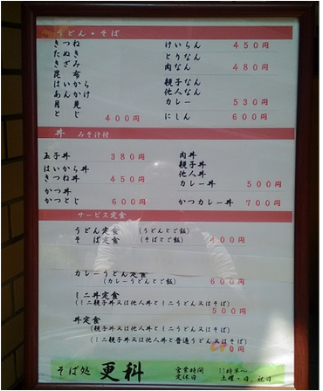 うどん・そば
きつね
たぬき
きざみ
昆布
はいから
あんかけ
月見
とじ 400円
けいらん 450円
とりなん
肉なん 480円
親子なん
他人なん
カレー 530円
にしん 600円
丼 みそ汁付
玉子丼 380円
はいから丼
きつね丼 450円
かつ丼
かつとじ 600円
肉丼
親子丼
他人丼
カレー丼 500円
かつカレー丼 700円
サービス定食
うどん定食 (うどんとご飯)
そば定食 (そばとご飯) 400円
カレーうどん定食
(カレーうどんとご飯) 600円
ミニ丼定食
(ミニ親子丼又は他人丼とミニうどん又はそば)
500円
丼定食
(親子丼又は他人丼とミニうどん又はそば)
(ミニ親子丼又は他人丼と普通うどん又はそば)
そば処 更科
営業時間 11時半〜
定休日 土曜・日、祝日